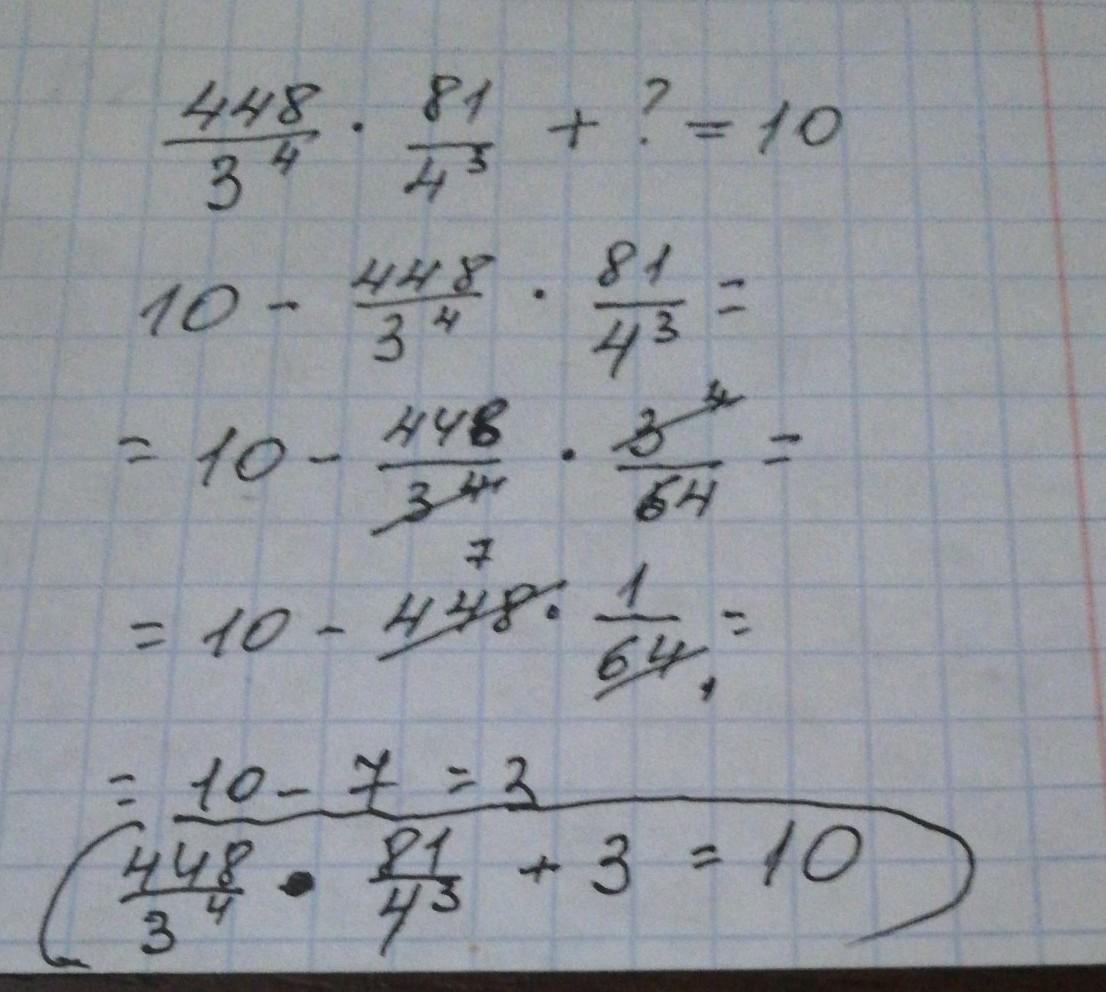 448/3^4 · 81/4^3 + ? = 10
10 - 448/3^4 · 81/4^3 =
= 10 - 448/3^4 · 3^4/64 =
7
= 10 - 448 · 1/64 =
1
= 10 - 7 = 3
448/3^4 · 81/4^3 + 3 = 10